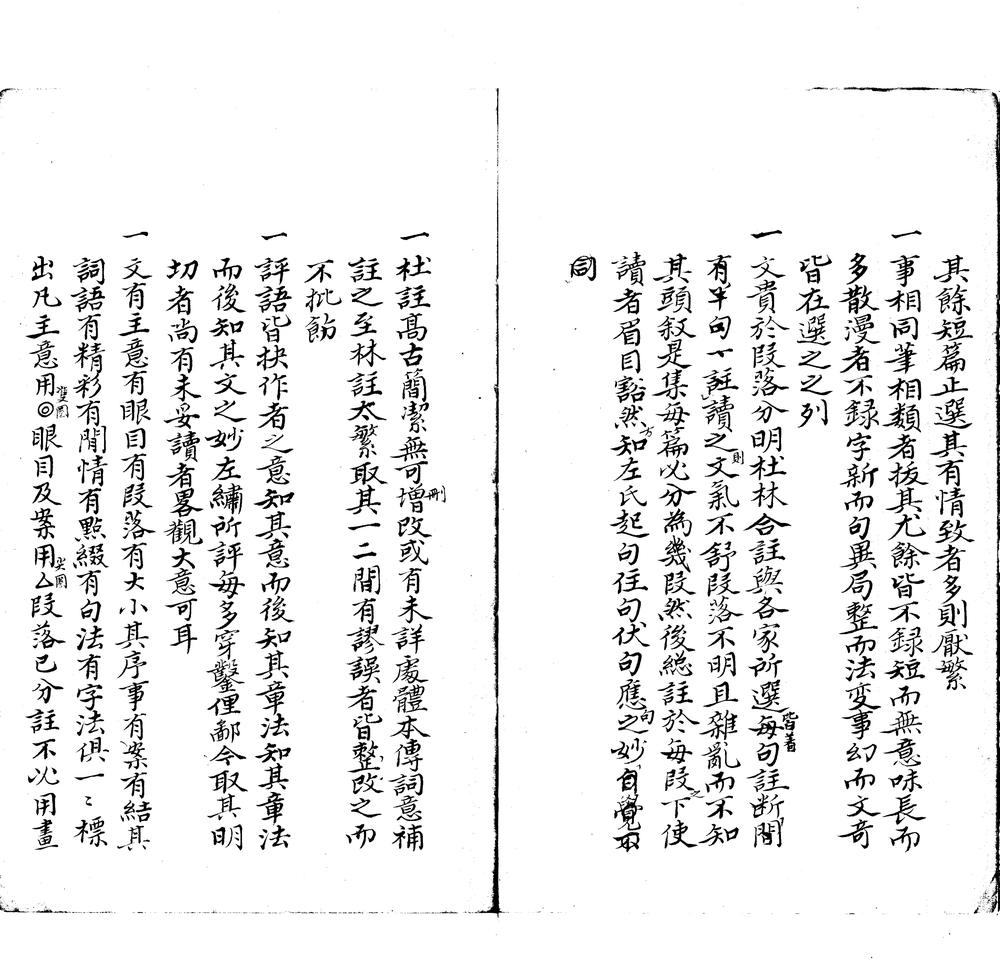 其餘短篇止選其有情致者多則厭繁
一事相同筆相類者拔其尤餘皆不録短而無意味長而
多散漫者不録字新而句異局整而法変事幻而文竒
皆在選之之列
一文貴於段落分明杜林合註與各家所選每句註断間皆著
有半句一註讀之則文氣不舒段落不明且雜亂而不知
其頭叙是集每篇必分為幾段然後總註於每段之下使
讀者眉目豁然方知左氏起句住句伏句應句之妙
同
一杜註髙古簡潔無可增刪改或有未詳處體本傳詞意補
註之至林註太繁取其一二間有謬誤者皆整改之而
不批飭
一評語皆抉作者之意知其意而後知其章法知其章法
而後知其文之妙左繡所評每多穿鑿俚鄙今取其明
切者尚有未妥讀者畧觀大意可耳
一文有主意有眼目有段落有大小其序事有案有結其
詞語有精彩有閒情有點綴有句法有字法俱一〻標
出凡主意用◎雙圏眼目及案用△尖圏段落已分註不必用畫